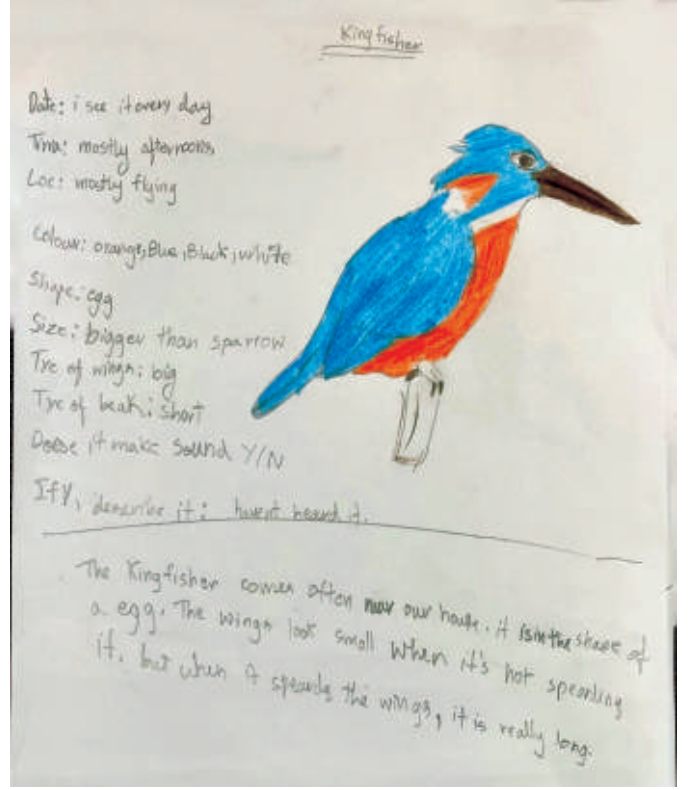 Kingfisher
Date: i see it every day
Time: mostly afternoons
Loc: mostly flying
Colour: orange, Blue, Black, white
Shape: egg
Size: bigger than sparrow
Tye of wings: big
Tye of beak: short
Doese it make sound Y/N
If Y, describe it: havent heard it.
The Kingfisher comes often near our house. it is in the shape of
a egg. The wings look small when it's not spearding
it. but when it speards the wings, it is really long.